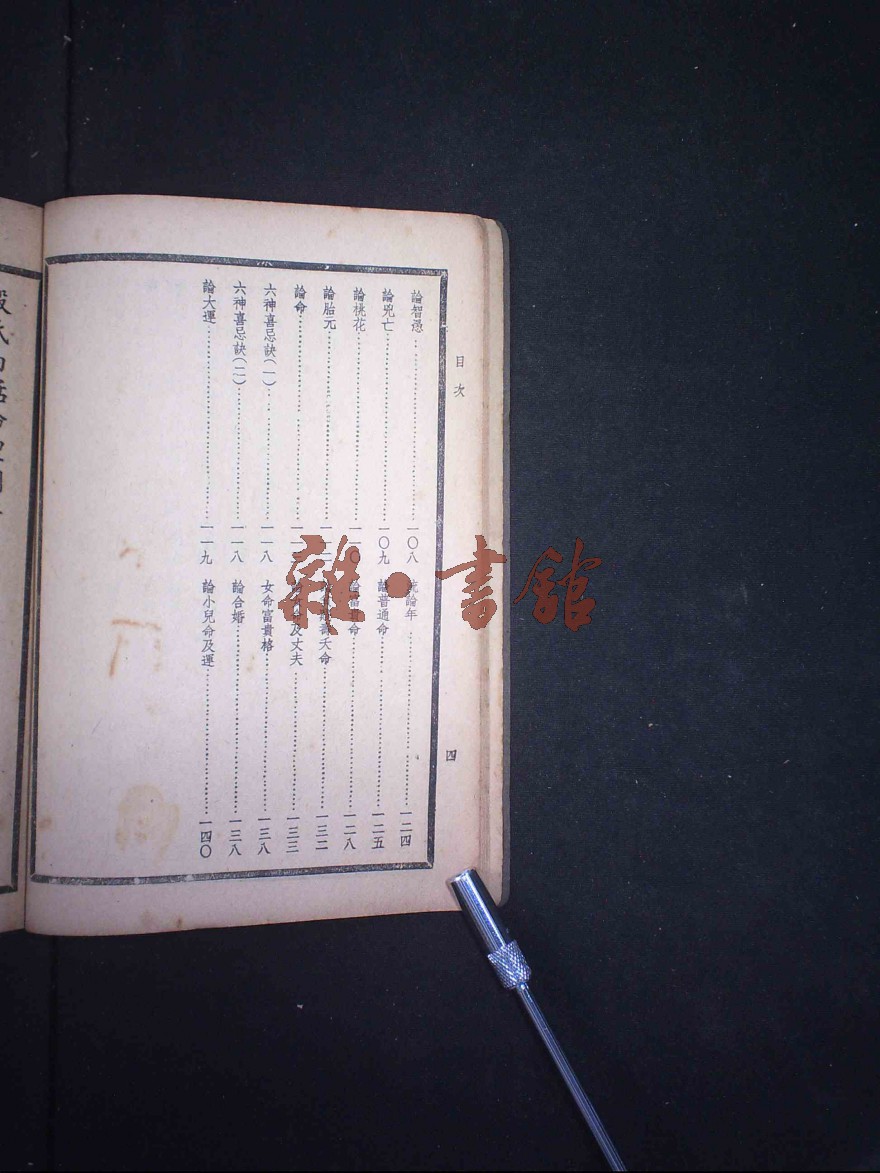 目次
四
論智愚……一〇八
論兇亡……一〇九
論桃花……一一〇
論胎元……一一
論命……一一
六神喜忌訣(一)……一一八
六神喜忌訣(二)……一一八
論大運……一一九
論年……一二四
論普通命……一二五
命……一二八
夭命……一三二
及丈夫……一三三
女命富貴格……一三八
論合婚……一三八
論小兒命及運……一四〇
雜·書館